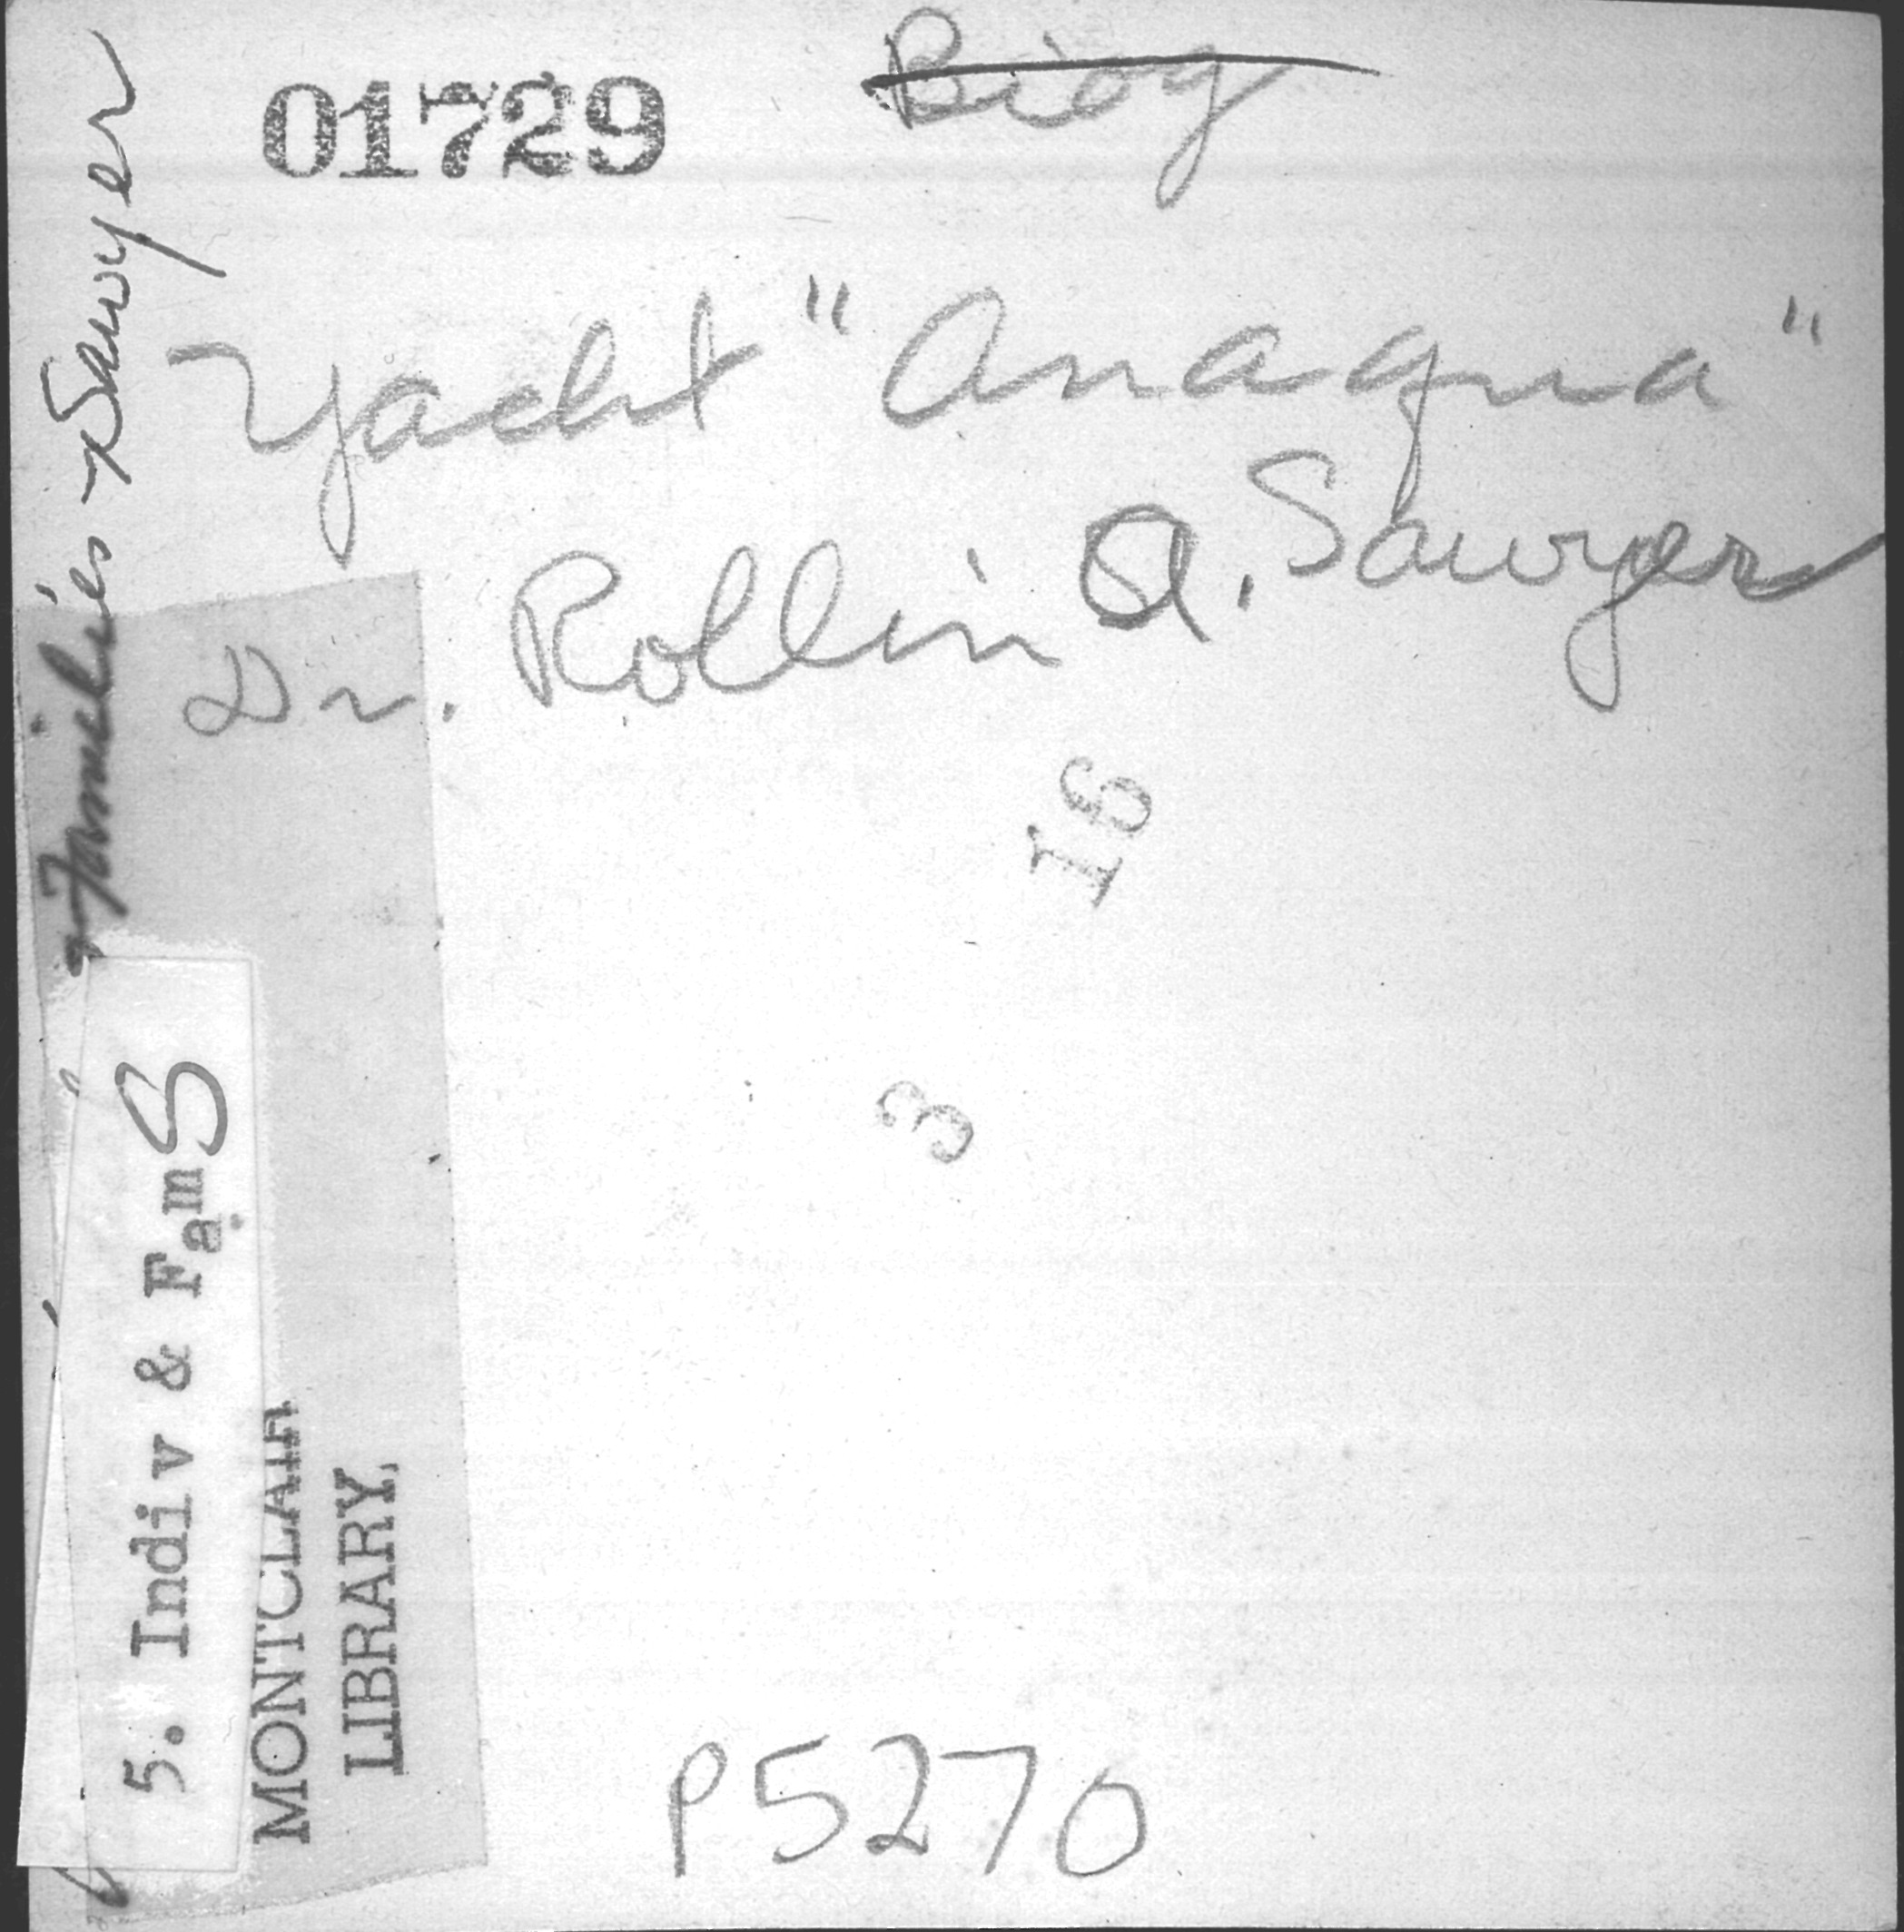 01729
Biog
Yacht "Anaqua"
Dr. Rollin A. Sawyer
16
3
P5270
Families - Sawyer
5. Indiv & Fam S
MONTCLAIR
LIBRARY